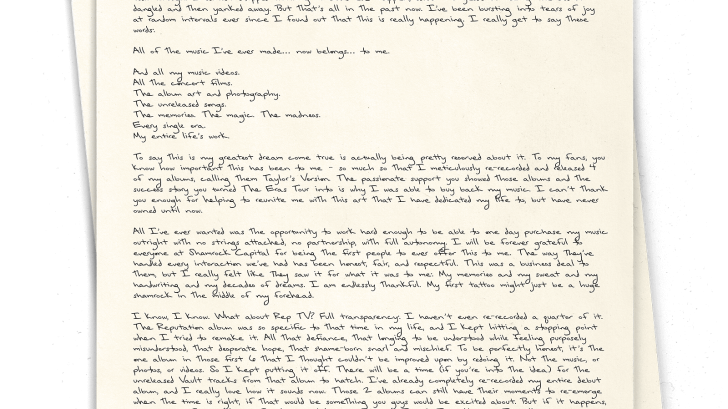 dangled and then yanked away. But that's all in the past now. I've been bursting into tears of joy
at random intervals ever since I found out that this is really happening. I really get to say these
words:
All of the music I've ever made... now belongs... to me.
And all my music videos.
All the concert films.
The album art and photography.
The unreleased songs.
The memories. The magic. The madness.
Every single era.
My entire life's work.
To say this is my greatest dream come true is actually being pretty reserved about it. To my fans, you
know how important this has been to me - so much so that I meticulously re-recorded and released 4
of my albums, calling them Taylor's Version. The passionate support you showed those albums and the
success story you turned The Eras Tour into is why I was able to buy back my music. I can't thank
you enough for helping to reunite me with this art that I have dedicated my life to, but have never
owned until now.
All I've ever wanted was the opportunity to work hard enough to be able to one day purchase my music
outright with no strings attached, no partnership, with full autonomy. I will be forever grateful to
everyone at Shamrock Capital for being the first people to ever offer this to me. The way they've
handled every interaction we've had has been honest, fair, and respectful. This was a business deal to
them, but I really felt like they saw it for what it was to me: My memories and my sweat and my
handwriting and my decades of dreams. I am endlessly thankful. My first tattoo might just be a huge
shamrock in the middle of my forehead.
I know, I know. What about Rep TV? Full transparency: I haven't even re-recorded a quarter of it.
The Reputation album was so specific to that time in my life, and I kept hitting a stopping point
when I tried to remake it. All that defiance, that longing to be understood while feeling purposely
misunderstood, that desperate hope, that shame-born snarl and mischief. To be perfectly honest, it's the
one album in those first 6 that I thought couldn't be improved upon by redoing it. Not the music, or
photos, or videos. So I kept putting it off. There will be a time (if you're into the idea) for the
unreleased Vault tracks from that album to hatch. I've already completely re-recorded my entire debut
album, and I really love how it sounds now. Those 2 albums can still have their moments to re-emerge
when the time is right, if that would be something you guys would be excited about. But if it happens,